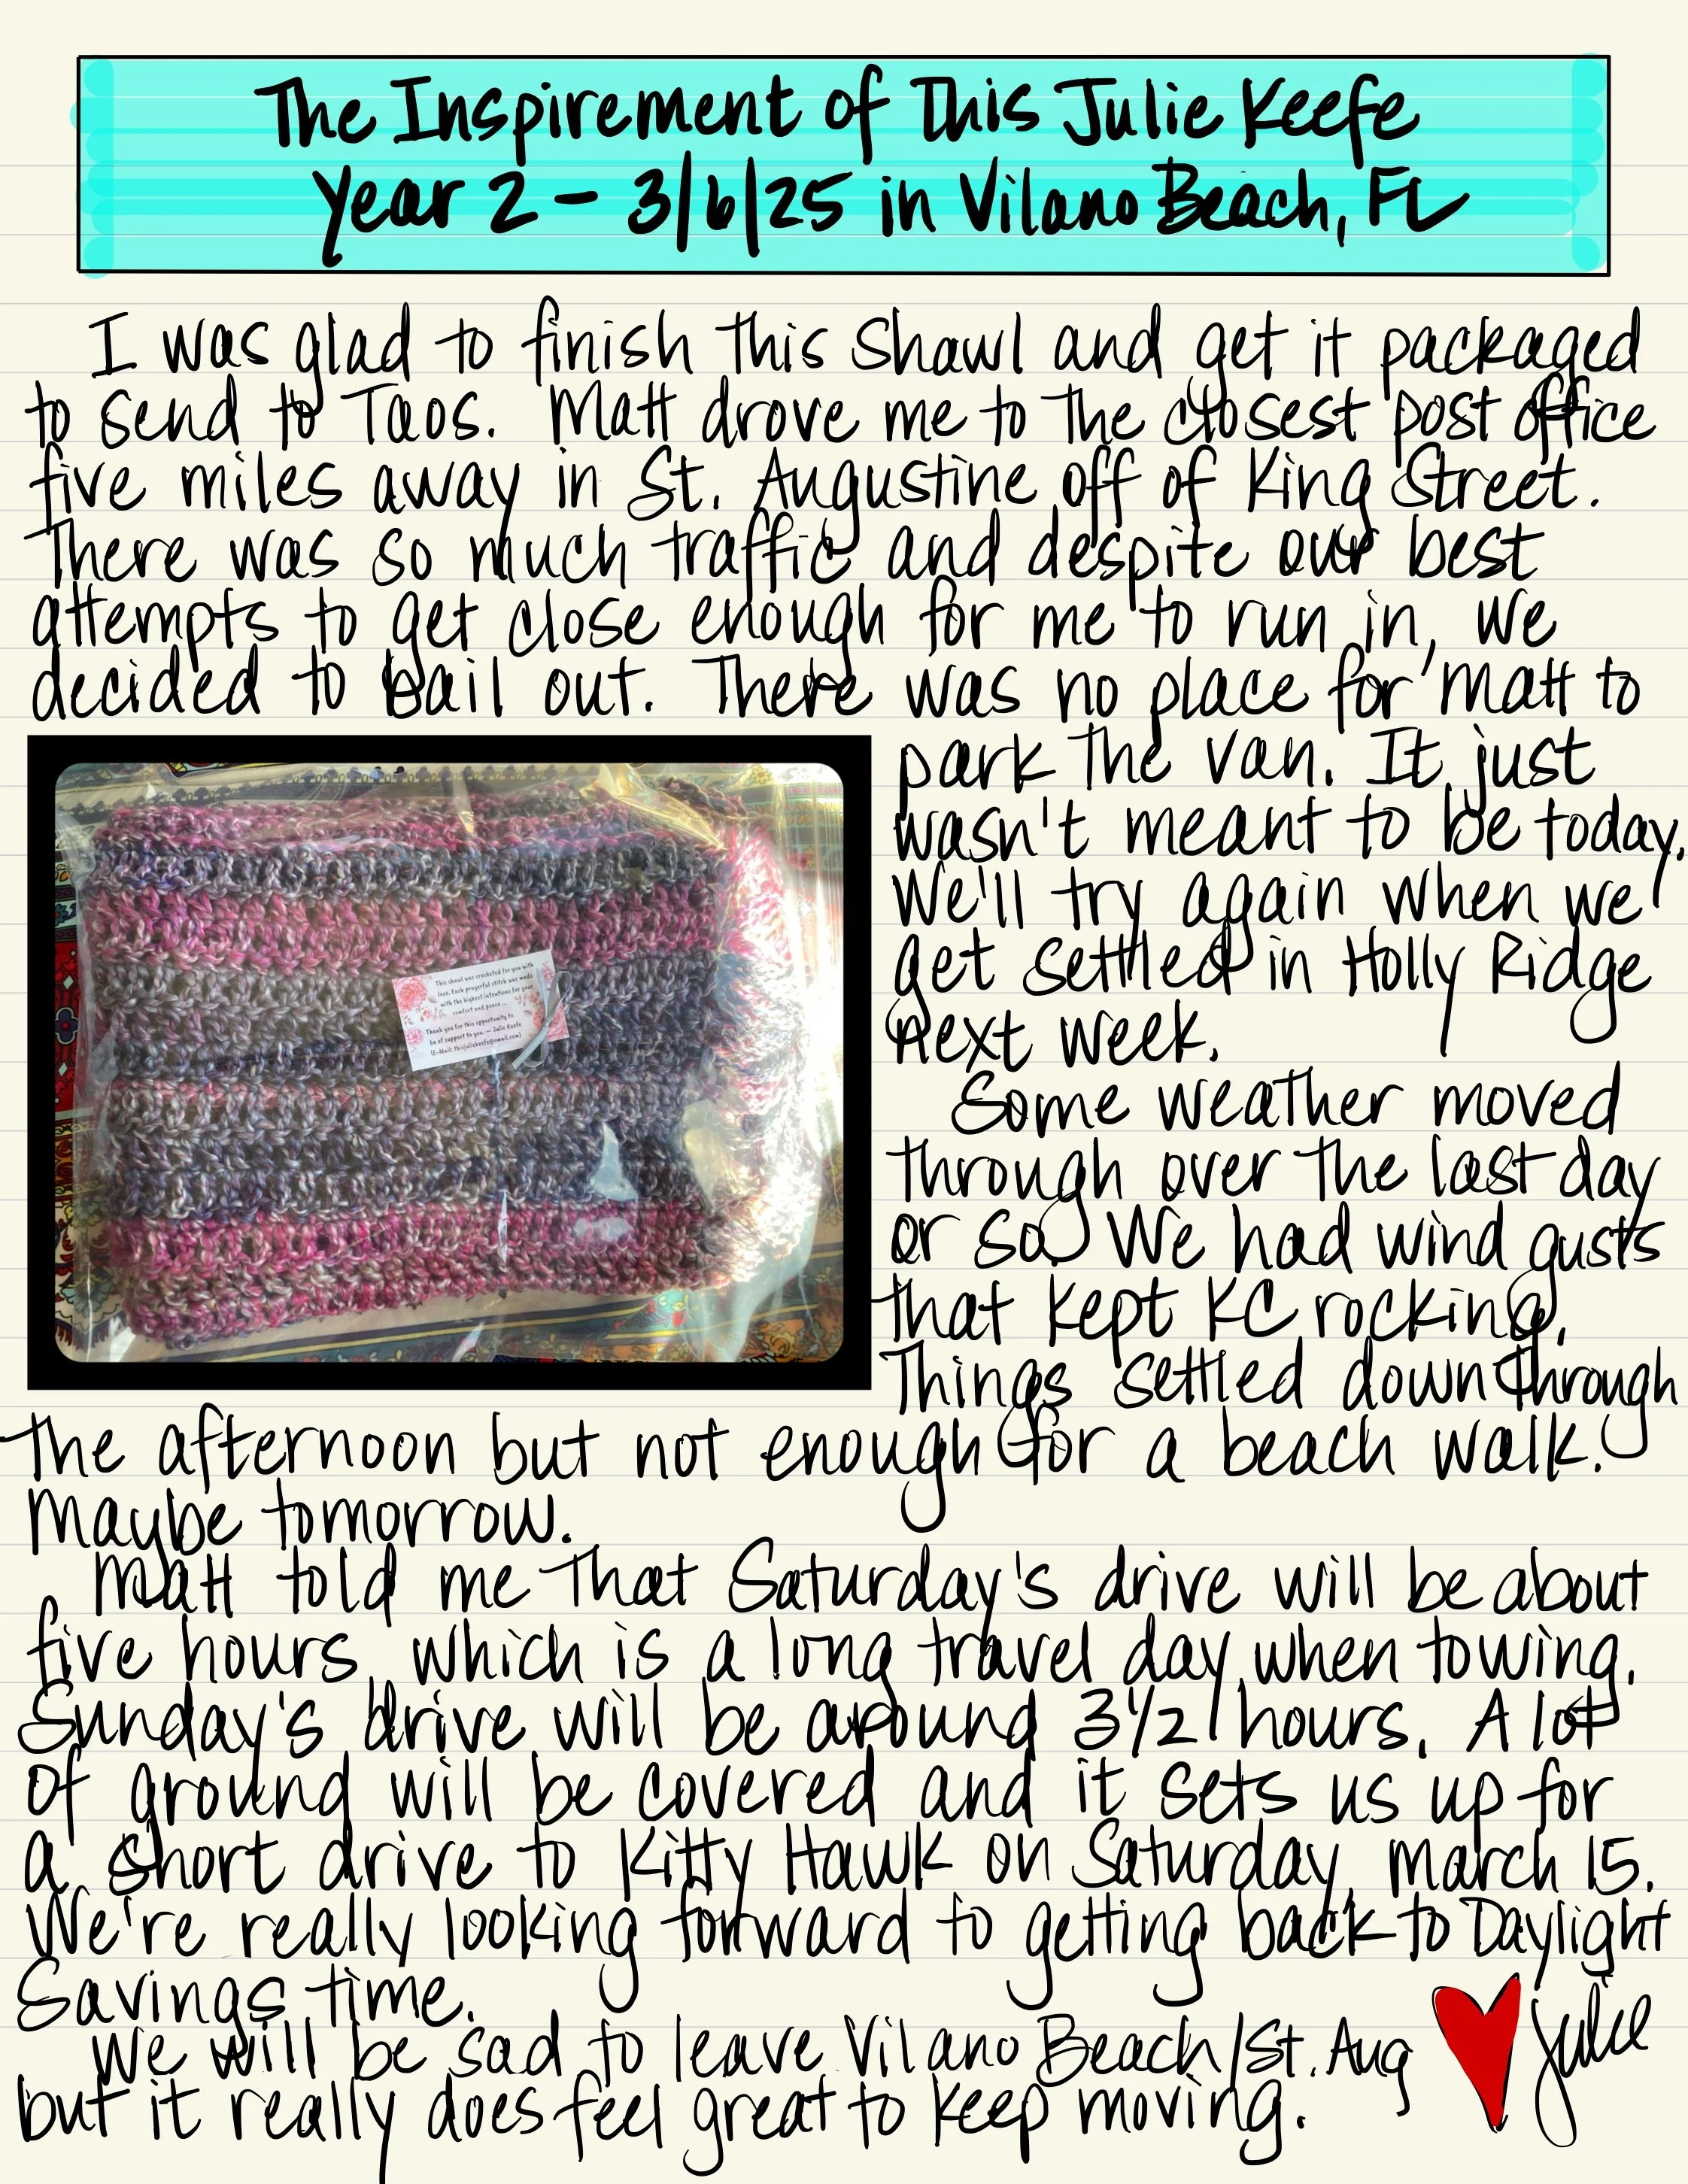 The Inspirement of This Julie Keefe
Year 2 - 3/6/25 in Vilano Beach, FL
I was glad to finish this shawl and get it packaged
to send to Taos. Matt drove me to the closest post office
five miles away in St. Augustine off of King Street.
There was so much traffic and despite our best
attempts to get close enough for me to run in, we
decided to bail out. There was no place for Matt to
park the van. It just
wasn't meant to be today.
We'll try again when we
get settled in Holly Ridge
next week.
Some weather moved
through over the last day
or so. We had wind gusts
that kept KC rocking.
Things settled down through
the afternoon but not enough for a beach walk.
Maybe tomorrow.
Matt told me that Saturday's drive will be about
five hours, which is a long travel day when towing.
Sunday's drive will be around 3 1/2 hours. A lot
of ground will be covered and it sets us up for
a short drive to Kitty Hawk on Saturday, March 15.
We're really looking forward to getting back to Daylight
Savings time.
We will be sad to leave Vilano Beach/St. Aug
but it really does feel great to keep moving.
Julie
This shawl was crocheted for you with
love. Each prayerful stitch was made
with the highest intentions for your
comfort and peace ...
Thank you for this opportunity to
be of support to you. — Julie Keefe
(E-Mail: thisjuliekeefe@gmail.com)